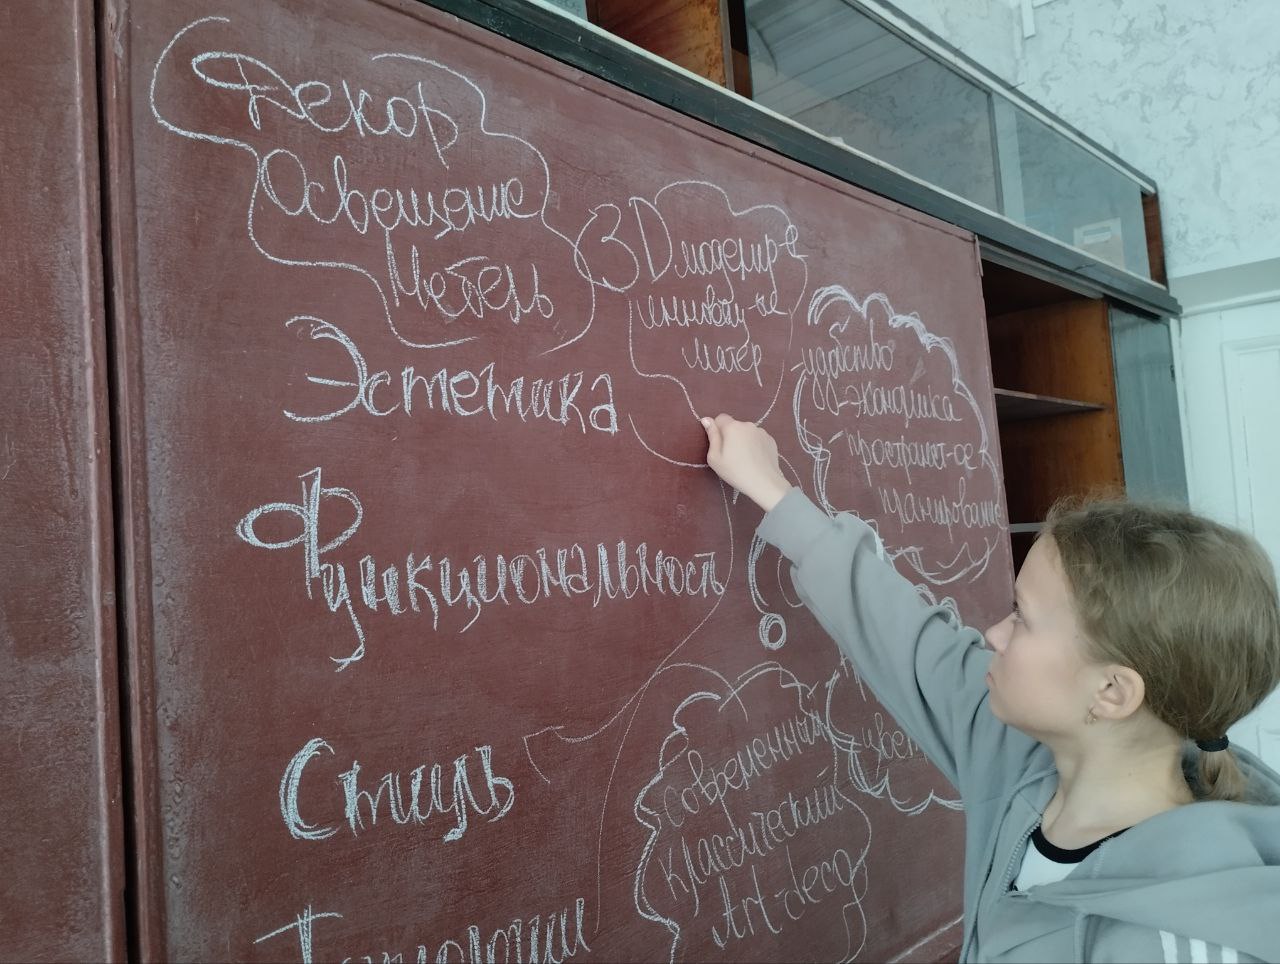 Декор
Освещение
Мебель
3D моделир-е
инновац-ые
матер
Эстетика
-удобство
-экономика
-пространст-ое
планирование
Функциональность
?
Стиль
современный
классический
Art-deco
цвет
Технологии